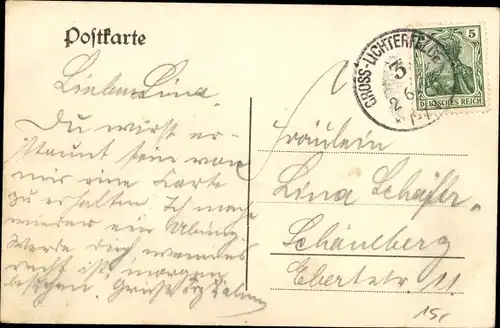 Postkarte
Liebe Lina
Du wirst er-
staunt sein von
mir eine Karte
zu erhalten Ich mache
wieder ein
Werde Dich
recht ist morgen
besuchen.
GROSS-LICHTERFELDE
3
2 6
5
DEUTSCHES REICH
Fräulein
Lina Schäfer
Schöneberg
Ebertstr. 11
15,